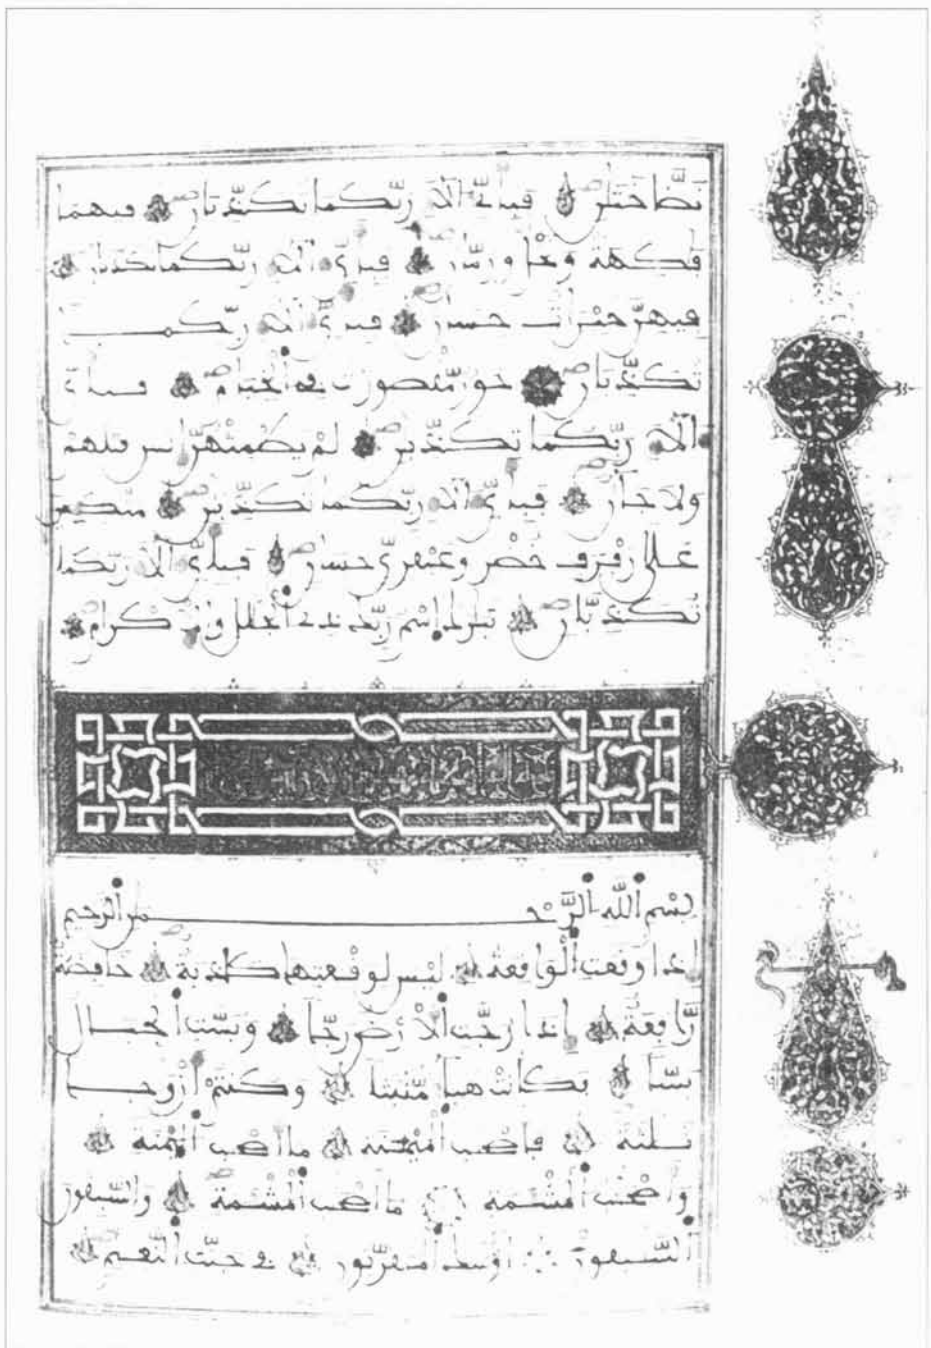 نَضَّاخَتَٰنِ فَبِأَيِّ ءَالَآءِ رَبِّكُمَا تُكَذِّبَانِ فِيهِمَا
فَٰكِهَةٌ وَنَخْلٌ وَرُمَّانٌ فَبِأَيِّ ءَالَآءِ رَبِّكُمَا تُكَذِّبَانِ
فِيهِنَّ خَيْرَٰتٌ حِسَانٌ فَبِأَيِّ ءَالَآءِ رَبِّكُمَا
تُكَذِّبَانِ حُورٌ مَّقْصُورَٰتٌ فِي الْخِيَامِ فَبِأَيِّ
ءَالَآءِ رَبِّكُمَا تُكَذِّبَانِ لَمْ يَطْمِثْهُنَّ إِنسٌ قَبْلَهُمْ
وَلَا جَآنٌّ فَبِأَيِّ ءَالَآءِ رَبِّكُمَا تُكَذِّبَانِ مُتَّكِـِٔينَ
عَلَىٰ رَفْرَفٍ خُضْرٍ وَعَبْقَرِيٍّ حِسَانٍ فَبِأَيِّ ءَالَآءِ رَبِّكُمَا
تُكَذِّبَانِ تَبَٰرَكَ اسْمُ رَبِّكَ ذِي الْجَلَٰلِ وَالْإِكْرَامِ
بِسْمِ اللَّهِ الرَّحْمَٰنِ الرَّحِيمِ
إِذَا وَقَعَتِ الْوَاقِعَةُ لَيْسَ لِوَقْعَتِهَا كَاذِبَةٌ خَافِضَةٌ
رَّافِعَةٌ إِذَا رُجَّتِ الْأَرْضُ رَجًّا وَبُسَّتِ الْجِبَالُ
بَسًّا فَكَانَتْ هَبَآءً مُّنۢبَثًّا وَكُنتُمْ أَزْوَٰجًا
ثَلَٰثَةً فَأَصْحَٰبُ الْمَيْمَنَةِ مَآ أَصْحَٰبُ الْمَيْمَنَةِ
وَأَصْحَٰبُ الْمَشْـَٔمَةِ مَآ أَصْحَٰبُ الْمَشْـَٔمَةِ وَالسَّٰبِقُونَ
السَّٰبِقُونَ أُوْلَٰٓئِكَ الْمُقَرَّبُونَ فِي جَنَّٰتِ النَّعِيمِ